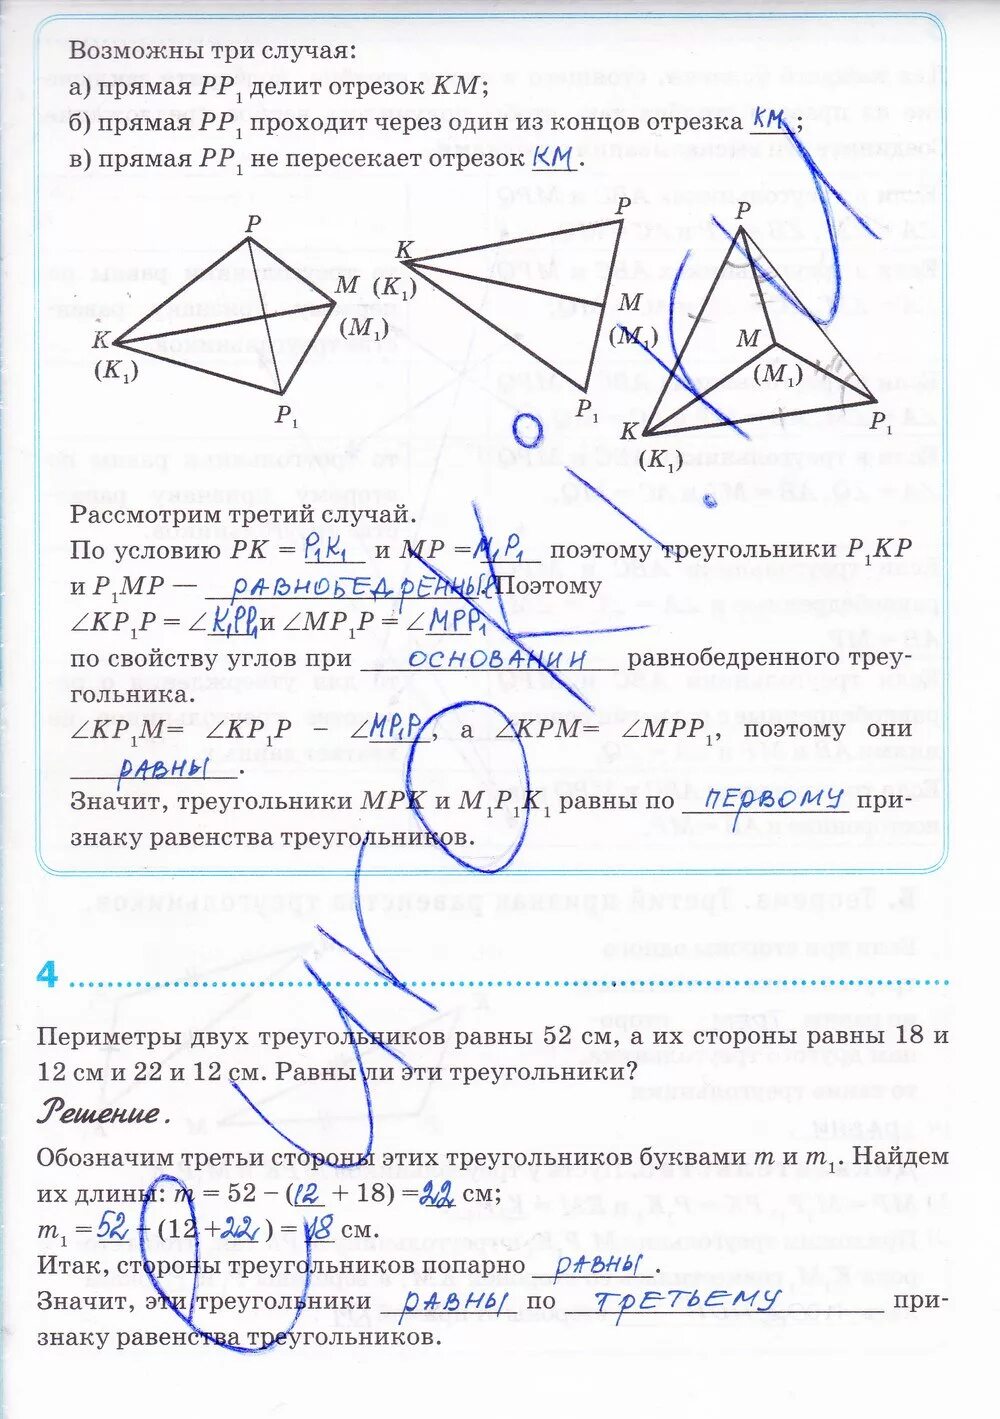 Возможны три случая:
а) прямая PP₁ делит отрезок KM;
б) прямая PP₁ проходит через один из концов отрезка KM;
в) прямая PP₁ не пересекает отрезок KM.
P
K
(K₁)
M
(M₁)
P₁
P
K
(K₁)
M
(M₁)
P₁
P
M
(M₁)
K
(K₁)
P₁
Рассмотрим третий случай.
По условию PK = P₁K₁ и MP = M₁P₁ поэтому треугольники P₁KP
и P₁MP — РАВНОБЕДРЕННЫЕ. Поэтому
∠KP₁P = ∠K₁PP₁ и ∠MP₁P = ∠MPP₁
по свойству углов при ОСНОВАНИИ равнобедренного треу-
гольника.
∠KP₁M= ∠KP₁P – ∠MP₁P, а ∠KPM= ∠MPP₁, поэтому они
РАВНЫ.
Значит, треугольники MPK и M₁P₁K₁ равны по ПЕРВОМУ при-
знаку равенства треугольников.
4
Периметры двух треугольников равны 52 см, а их стороны равны 18 и
12 см и 22 и 12 см. Равны ли эти треугольники?
Решение.
Обозначим третьи стороны этих треугольников буквами m и m₁. Найдем
их длины: m = 52 – (12 + 18) = 22 см;
m₁ = 52 – (12 + 22) = 18 см.
Итак, стороны треугольников попарно РАВНЫ.
Значит, эти треугольники РАВНЫ по ТРЕТЬЕМУ при-
знаку равенства треугольников.